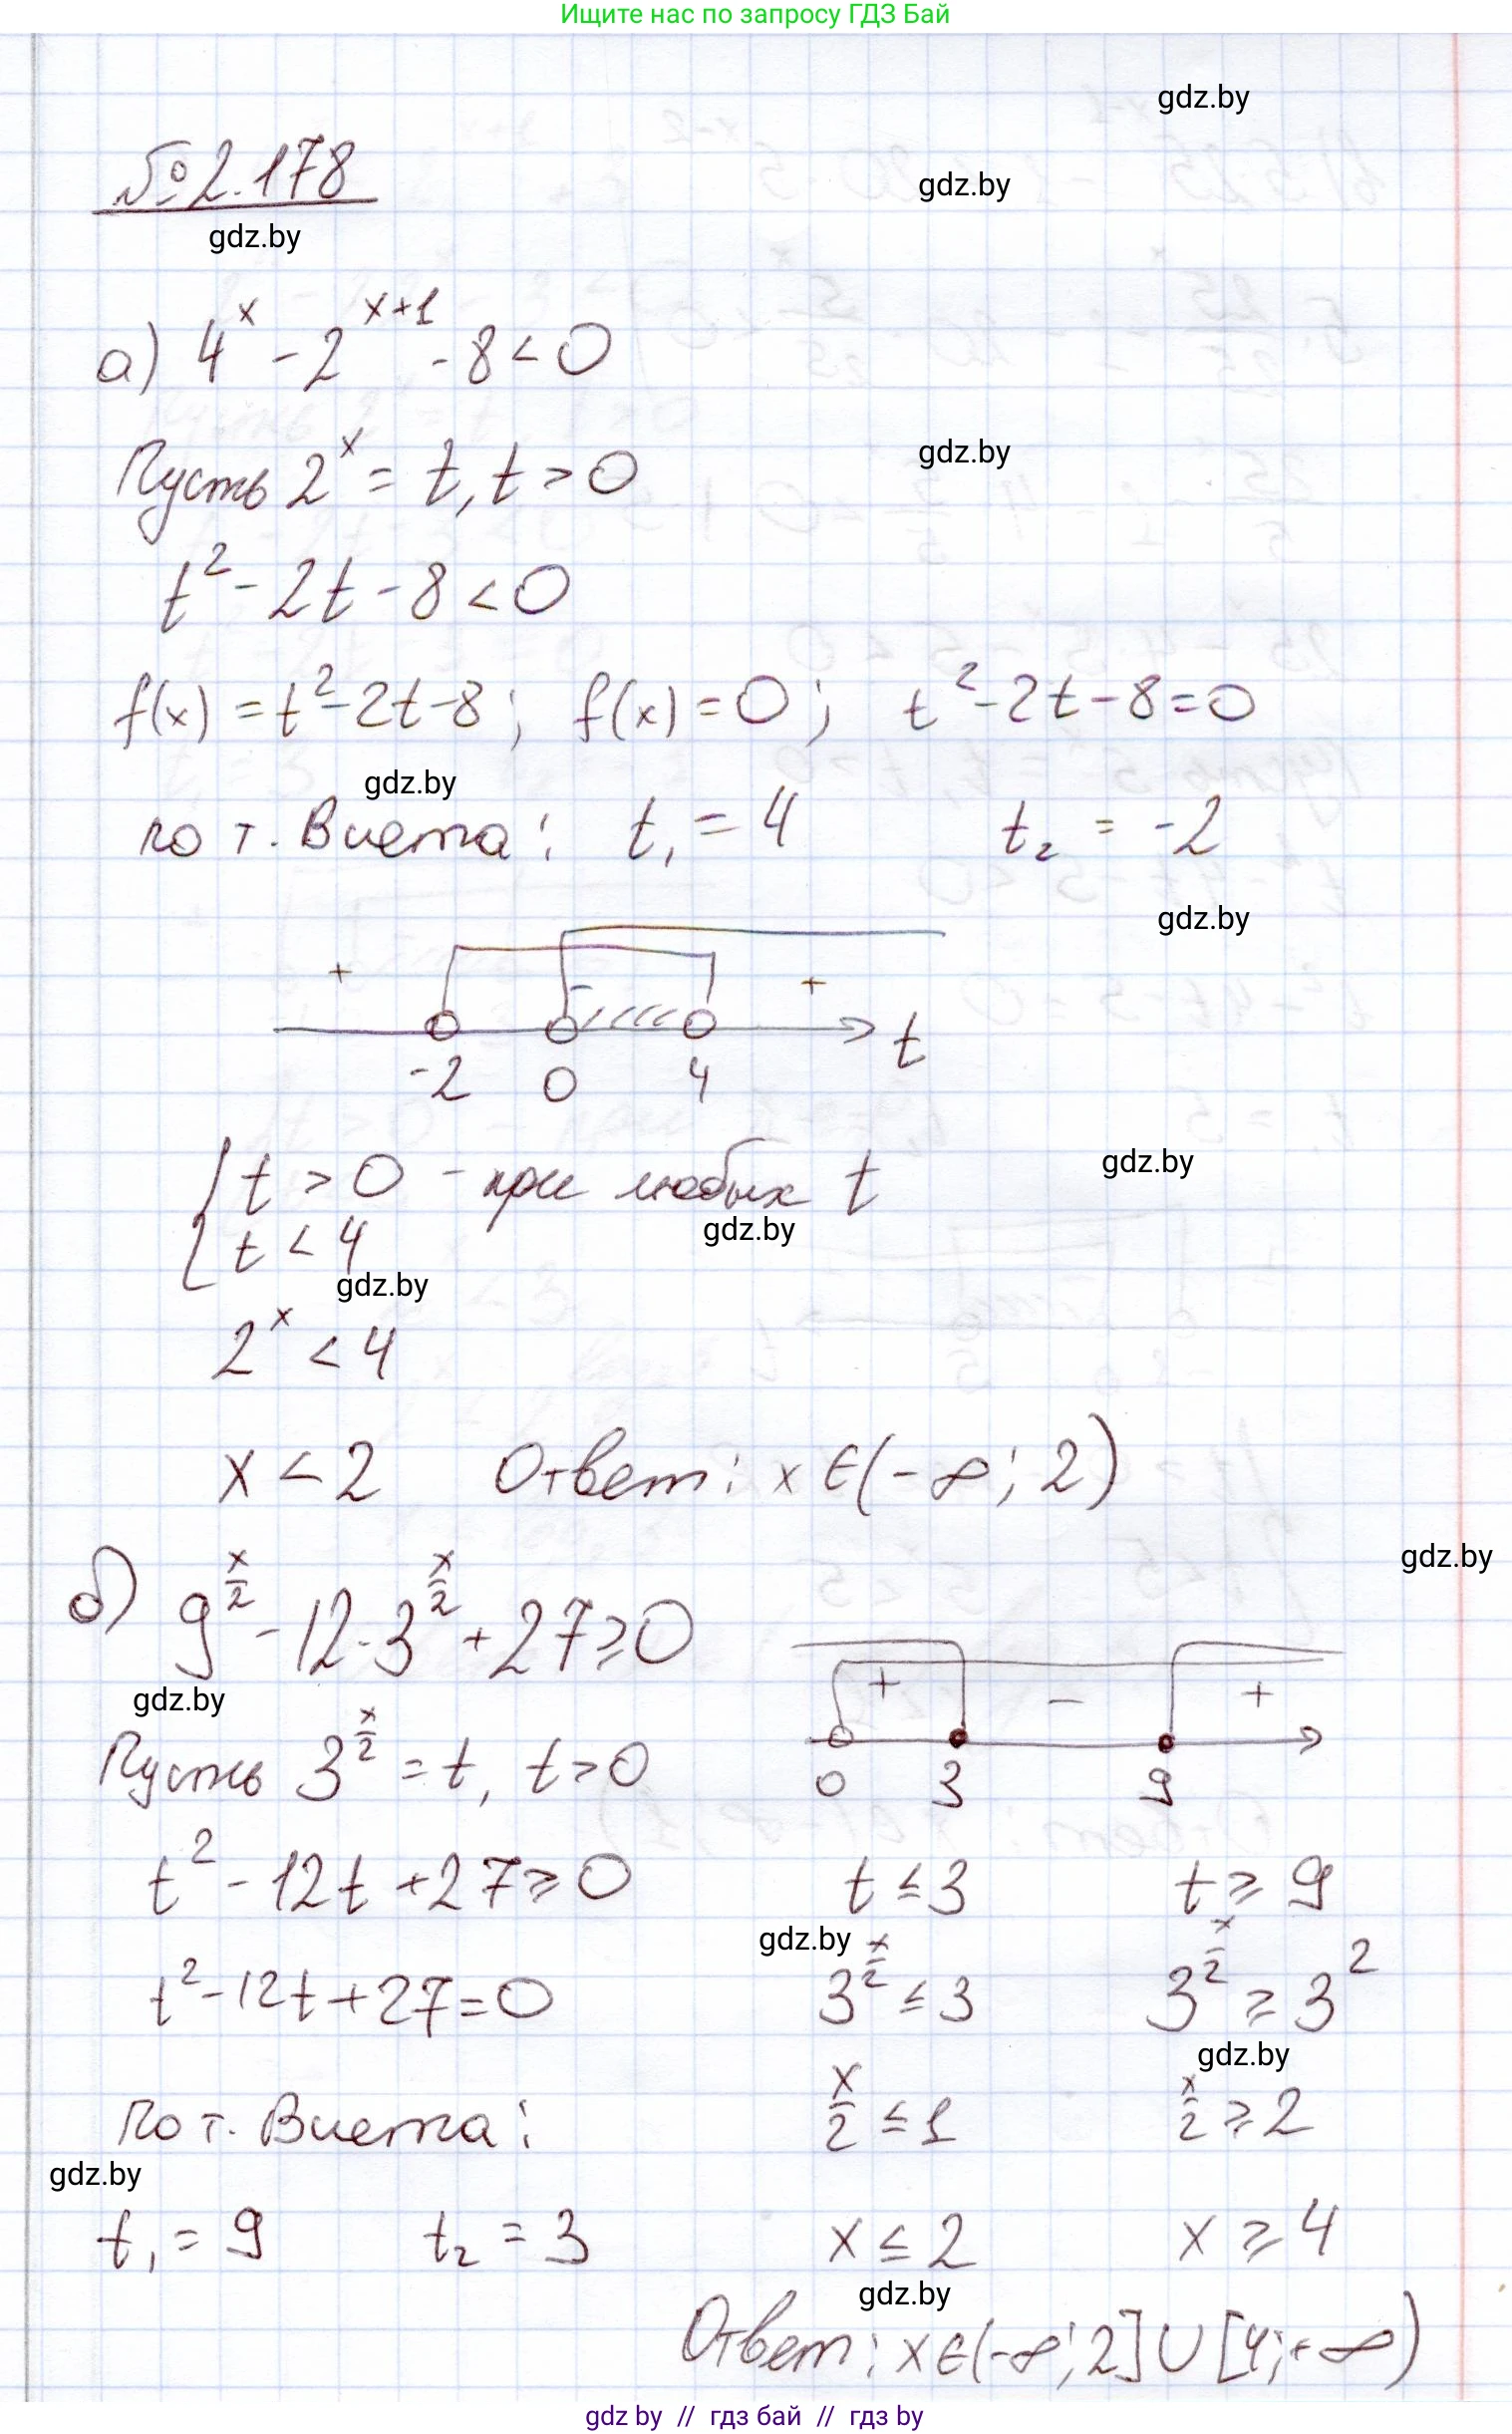 Ищите нас по запросу ГДЗ Бай
gdz.by
№2.178
gdz.by
gdz.by
а) 4^x - 2^{x+1} - 8 < 0
gdz.by
Пусть 2^x = t, t > 0
t^2 - 2t - 8 < 0
f(x) = t^2 - 2t - 8; f(x) = 0; t^2 - 2t - 8 = 0
gdz.by
по т. Виета: t_1 = 4 t_2 = -2
gdz.by
+ - +
-2 0 4 t
{ t > 0 - при любых t
gdz.by
gdz.by
t < 4
gdz.by
2^x < 4
x < 2 Ответ: x ∈ (-∞; 2)
gdz.by
б) 9^{x/2} - 12·3^{x/2} + 27 ≥ 0
gdz.by
Пусть 3^{x/2} = t, t > 0
t^2 - 12t + 27 ≥ 0
t^2 - 12t + 27 = 0
по т. Виета:
gdz.by
t_1 = 9 t_2 = 3
+ - +
0 3 9
t ≤ 3 t ≥ 9
gdz.by
3^{x/2} ≤ 3 3^{x/2} ≥ 3^2
gdz.by
x/2 ≤ 1 x/2 ≥ 2
x ≤ 2 x ≥ 4
gdz.by
Ответ: x ∈ (-∞; 2] ∪ [4; +∞)
gdz by // гдз бай // гдз by